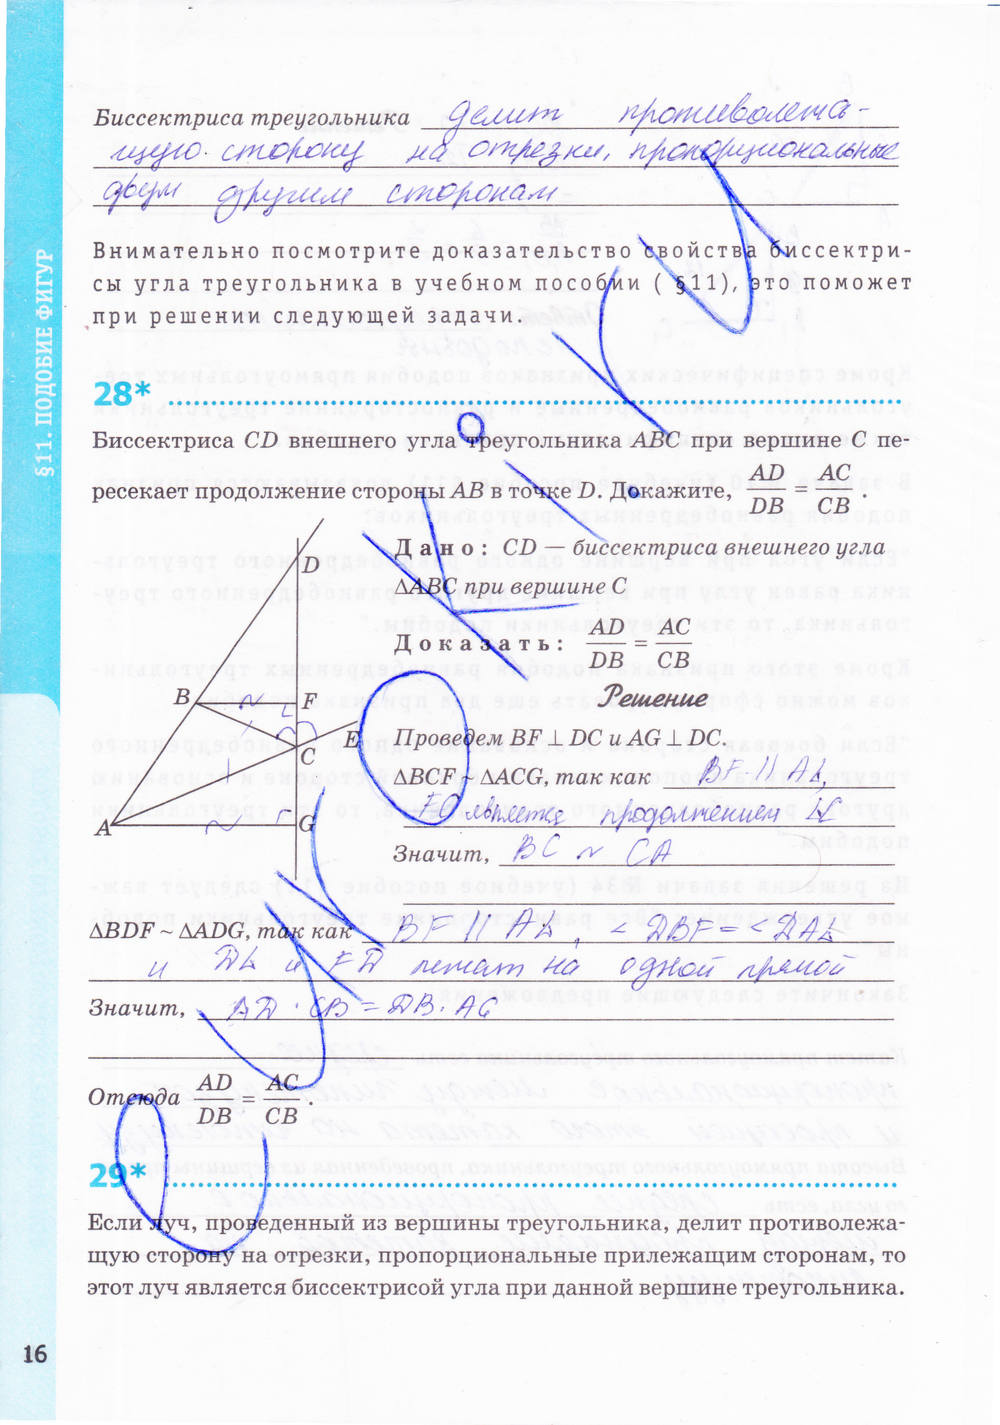 Биссектриса треугольника делит противолежа-
щую сторону на отрезки, пропорциональные
двум другим сторонам
Внимательно посмотрите доказательство свойства биссектри-
сы угла треугольника в учебном пособии ( §11), это поможет
при решении следующей задачи.
§11. ПОДОБИЕ ФИГУР
28*
Биссектриса CD внешнего угла треугольника ABC при вершине C пе-
ресекает продолжение стороны AB в точке D. Докажите, AD/DB = AC/CB .
Дано: CD — биссектриса внешнего угла
ΔABC при вершине C
Доказать: AD/DB = AC/CB
D
B
F
E
C
A
G
Решение
Проведем BF ⊥ DC и AG ⊥ DC.
ΔBCF ~ ΔACG, так как BF || AG,
FC является продолжением
Значит, BC ~ CA
ΔBDF ~ ΔADG, так как BF || AG, < DBF = < DAG
и DG и FD лежат на одной прямой
Значит, AD · CB = DB · AC
Отсюда AD/DB = AC/CB .
29*
Если луч, проведенный из вершины треугольника, делит противолежа-
щую сторону на отрезки, пропорциональные прилежащим сторонам, то
этот луч является биссектрисой угла при данной вершине треугольника.
16